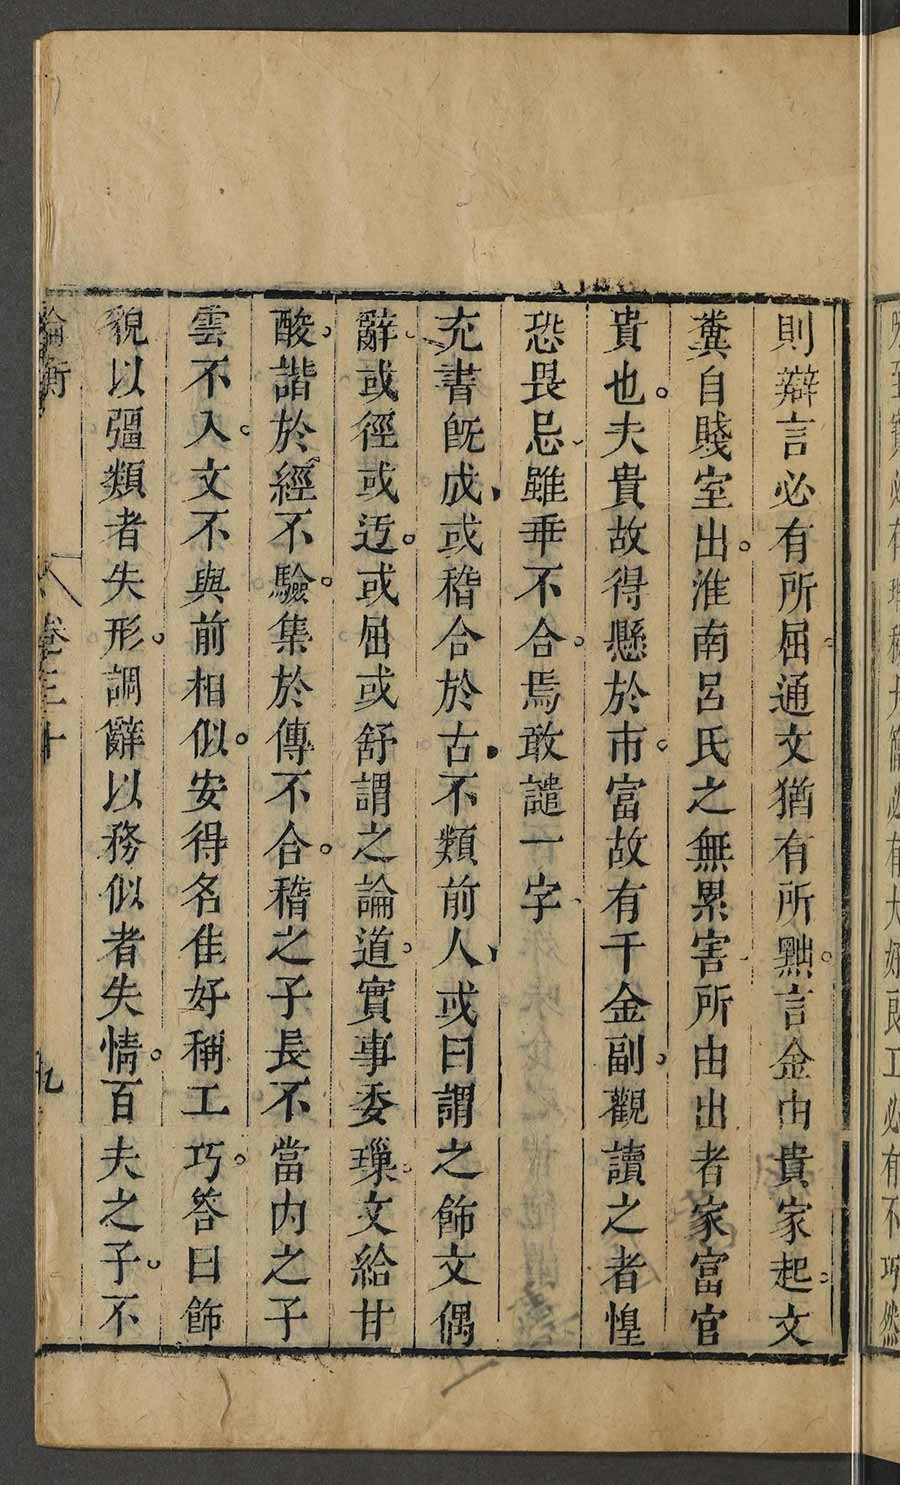 則辯言必有所屈通文猶有所黜言金由貴家起文
糞自賤室出淮南呂氏之無累害所由出者家富官
貴也夫貴故得懸於市富故有千金副觀讀之者惶
恐畏忌雖乖不合焉敢譴一字
充書旣成或稽合於古不類前人或曰謂之飾文偶
辭或徑或迃或屈或舒謂之論道實事委璅文給甘
酸諧於經不驗集於傳不合稽之子長不當內之子
雲不入文不與前相似安得名佳好稱工巧答曰飾
貌以彊類者失形調辭以務似者失情百夫之子不
論衡 卷三十 九